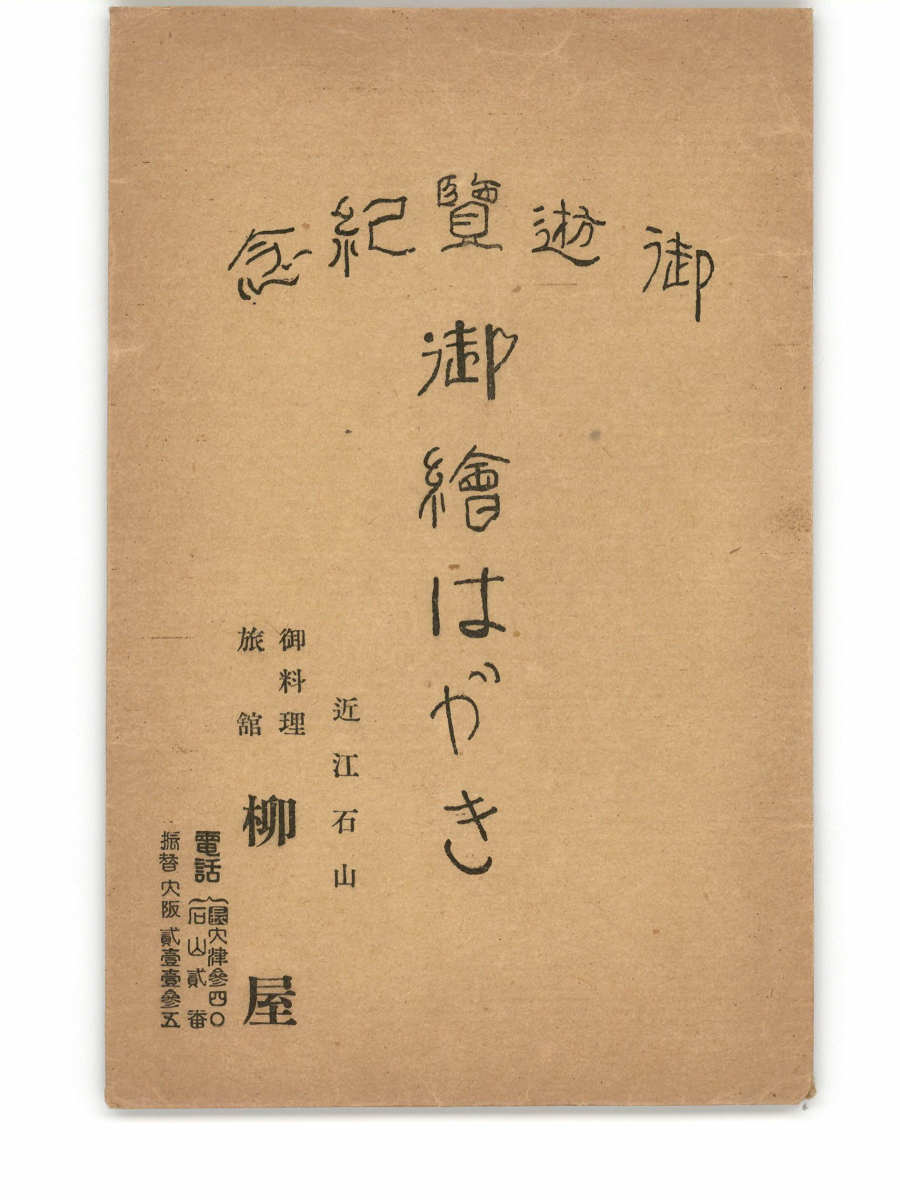 御遊覽紀念
御繪はがき
近江石山
御料理
旅舘
柳屋
電話
長大津參四〇
石山貳番
振替大阪貳壹壹參五